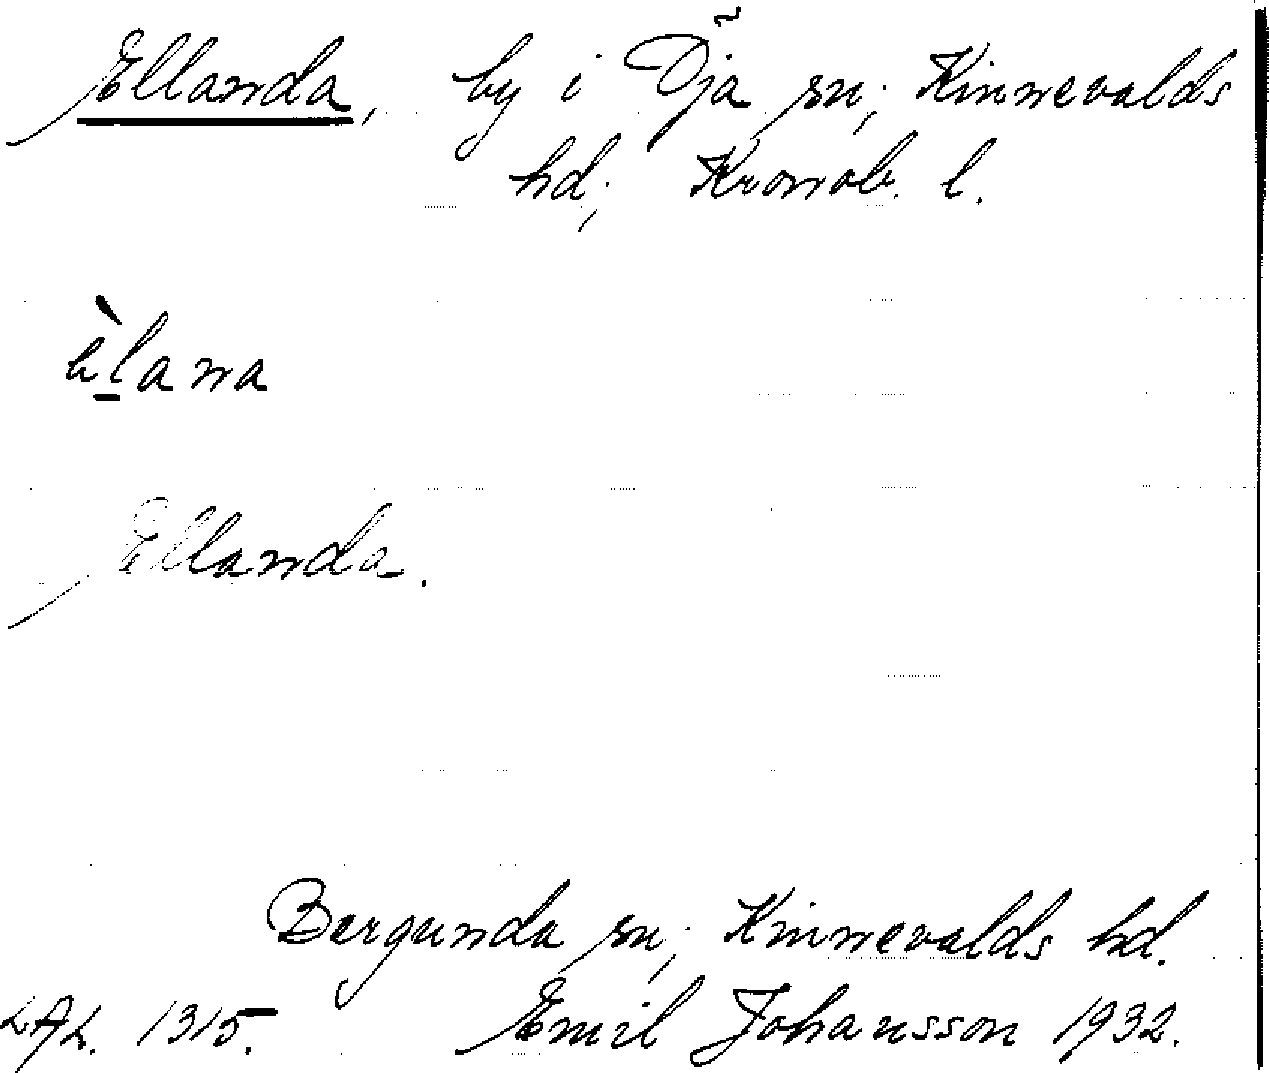 Ellanda, by i Öja sn; Kinnevalds
hd; Kronob. l.
èlana
Ellanda.
Bergunda sn; Kinnevalds hd.
LAL. 1315. Emil Johansson 1932.